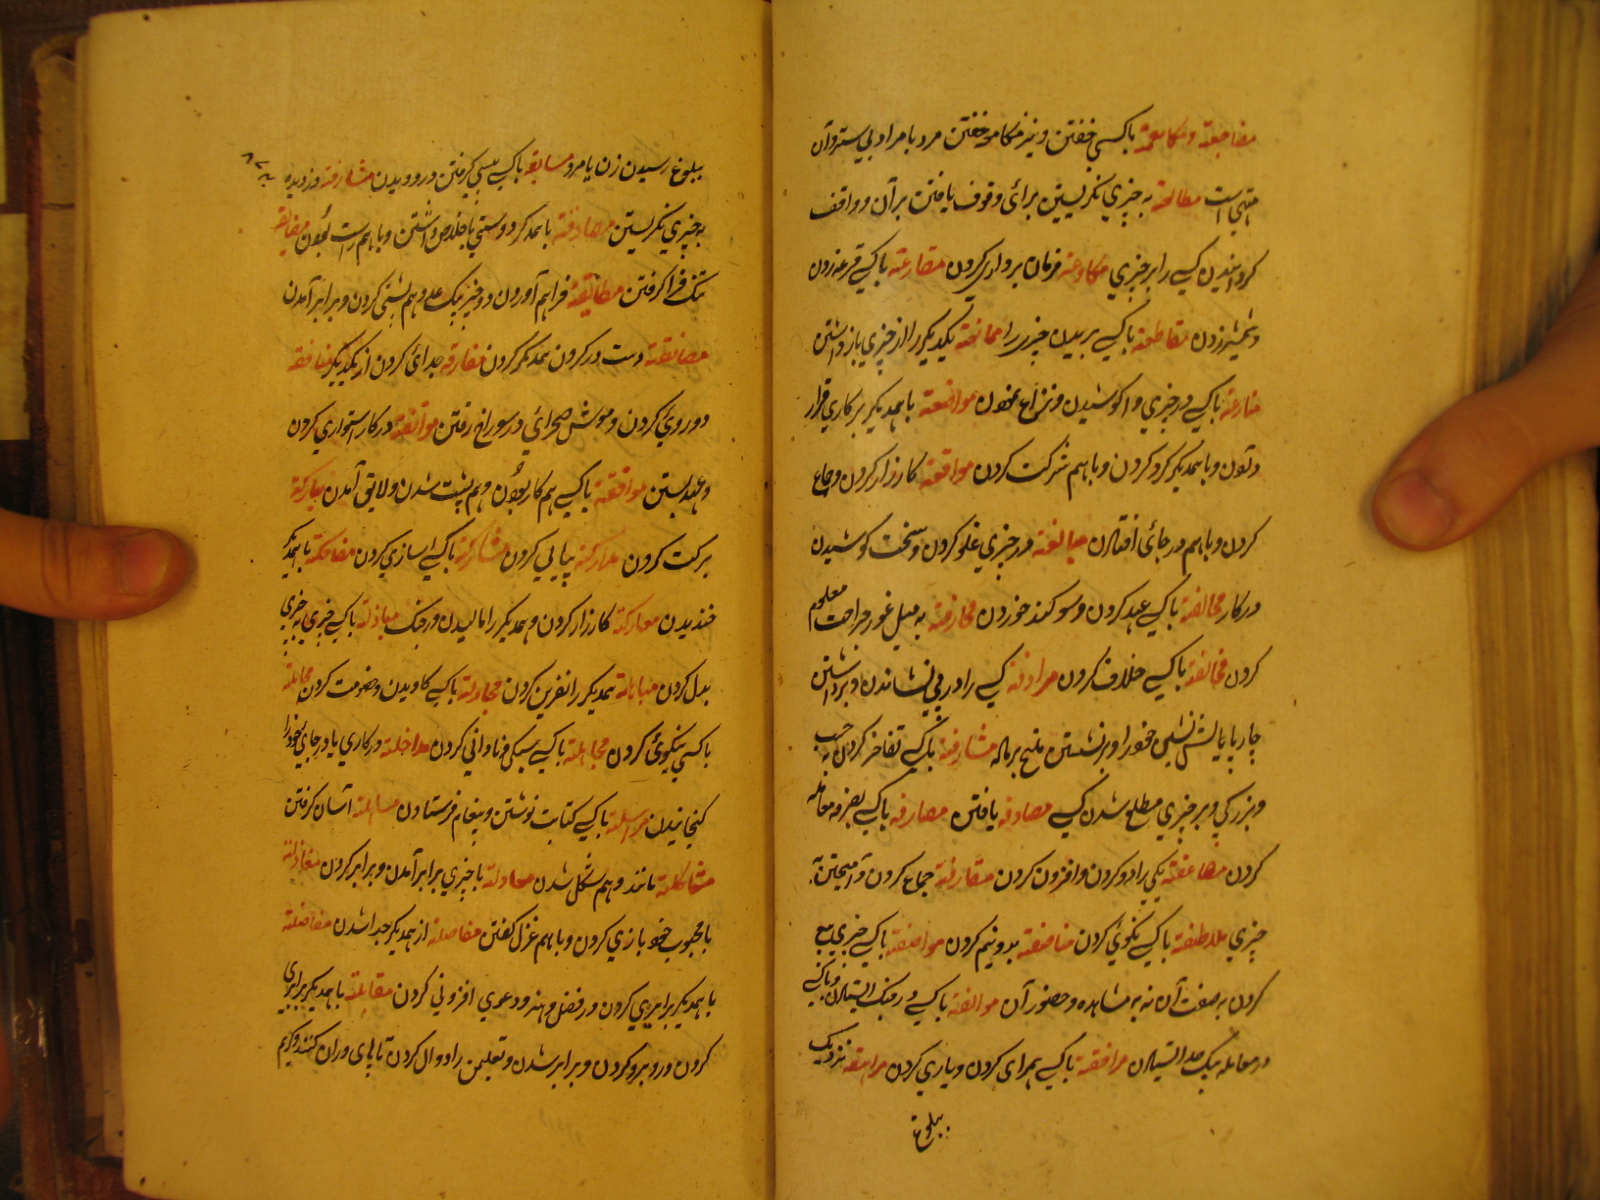 مضاجعة ومکامعة باکسی خفتن ونیز مکامعه خفتن مرد بامرد بی ستر وآن
منهی است مطالعة به چیزی نکریستن برای وقوف یافتن برآن وواقف
کردانیدن کسی را برچیزی مطاوعة فرمان برداری کردن مقارعة باکسی قرعه زدن
وشمشیر زدن مقاطعة باکسی بریدن چیزرا ممانعة یکدیکر را از چیزی بازداشتن
منازعة باکسی درچیزی واکوشیدن ونزاع نمودن مواضعة باهمدیکر برکاری قرار
دادن وباهمدیکر کرو کردن وباهم شرکت کردن مواقعة کارزار کردن وجماع
کردن وباهم درجای افتادن مبالغة درچیزی غلو کردن وسخت کوشیدن
درکار محالفة باکسی عهد کردن وسوکند خوردن محارفة به میل غور جراحت معلوم
کردن مخالفة باکسی خلاف کردن مرادفة کسی را در پی نشاندن وبرداشتن
چارپا پالش نشین خود را وبرنشستن ملخ برماده مشارفة باکسی تفاخر کردن به حسب
وبزرکی وبرچیزی مطلع شدن کسی مصادفه یافتن مصارفه باکسی بصرفه معامله
کردن مضاعفة یکی را دو کردن وافزون کردن مقارفة جماع کردن وآمیختن به
چیزی ملاطفة باکسی نکوئی کردن مناصفة بدونیم کردن مواصفة باکسی چیزی بیع
کردن به صفت آن نه به مشاهده وحضور آن مواقفة باکسی در جنک ایستادن وباکسی
درمعامله یک جد ایستادن مرافقة باکسی همراهی کردن ویاری کردن مراهقة نزدیک
ببلوغ
ببلوغ رسیدن زن یامرد مسابقة باکسی پیشی کرفتن در دویدن مسارقة دزدیده
به چیزی نکریستن مصادقة باهمدکر دوستی باخلاص داشتن وباهم راست بودن مضایقة
تنک فرا کرفتن مطابقة فراهم آوردن دوچیز بیک جا وهم پشتی کردن وبرابر آمدن
معانقة دست درکردن همدیکر کردن مفارقة جدائی کردن از یکدیکر منافقة
دوروئی کردن وموش صحرائی درسوراخ رفتن مواثقة درکار استواری کردن
وعهد بستن موافقة باکسی هم کار بودن وهم پشت شدن ولایق آمدن مبارکة
برکت کردن مدارکة پیاپی کردن مشارکة باکسی انبازی کردن مضاحکة باهمدیکر
خندیدن معارکة کارزار کردن وهمدیکر را مالیدن درجنک مبادلة باکسی چیزی به چیزی
بدل کردن مباهلة همدیکر را نفرین کردن مجادلة باکسی کاویدن وخصومت کردن مجاملة
باکسی نیکوئی کردن مجاهلة باکسی سبکی ونادانی کردن مداخلة درکاری یا درجای خود را
کنجانیدن مراسلة باکسی کتابت نوشتن وپیغام فرستادن مساهلة آسان کرفتن
مشاکلة مانند وهم شکل شدن معادلة باچیزی برابر آمدن وبرابر کردن مغازلة
بامحبوب خود بازی کردن وباهم غزل کفتن مفاصلة از همدیکر جدا شدن مفاضلة
باهمدیکر برابری کردن درفضل وهنر ودعوی افزونی کردن مقابلة باهمدیکر برابری
کردن وروبرو کردن وبرابر شدن ونعلین را دوال کردن تاپای دران کنند وکریم